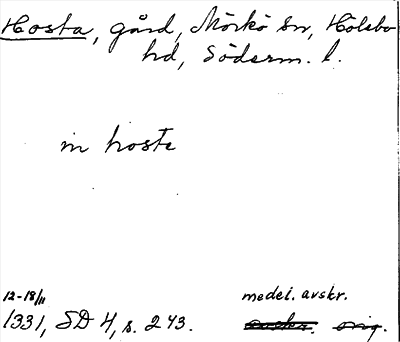 Hosta, gård, Mörkö sn, Hölebo
hd, Söderm. l.
in hoste
12-18/11
medel. avskr.
1331, SD 4, s. 243.
avskr. orig.